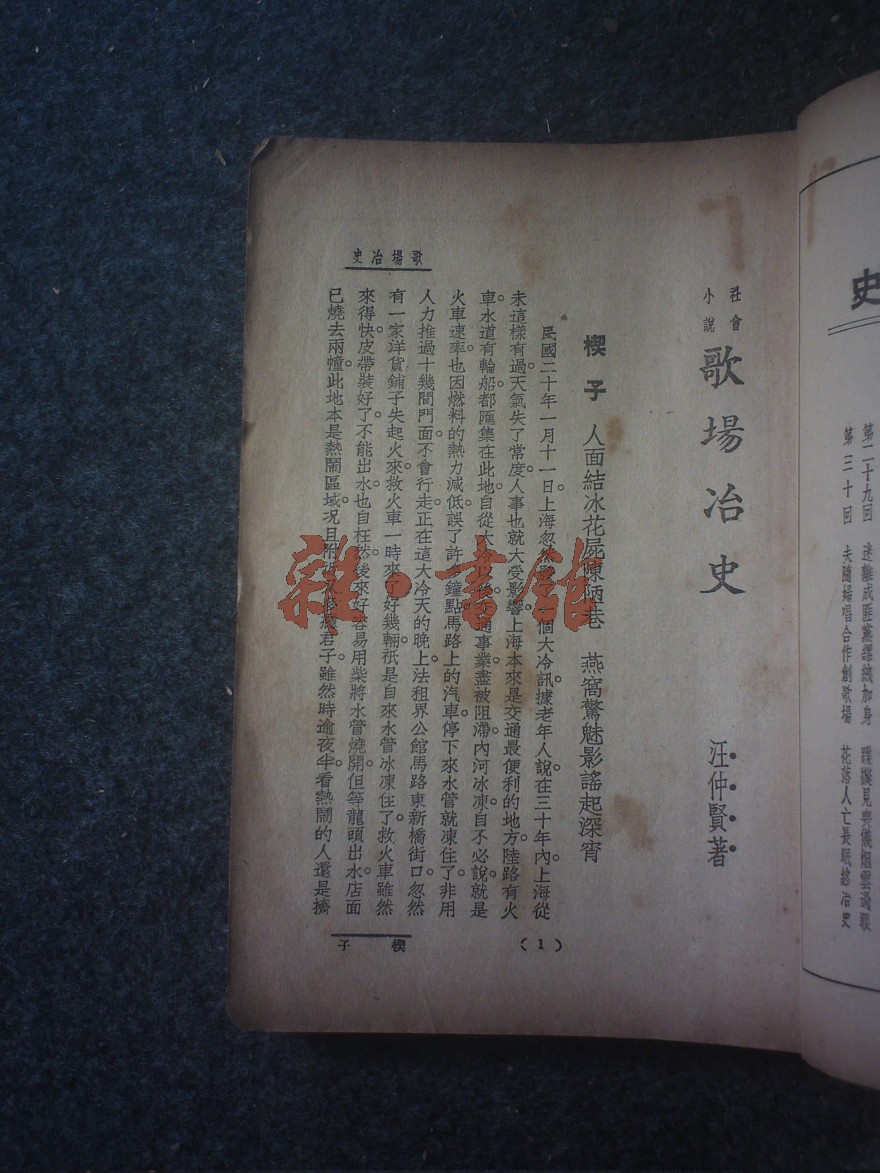 史
第二十九回
第三十回 夫隨婦唱合作創歌場 花落人亡長眠終冶史
社會
小說
歌場冶史
汪仲賢著
楔子 人面結冰花屍陳陋巷 燕窩驚魅影謠起深宵
民國二十年一月十一日上海忽然 個大冷訊據老年人說在三十年內上海從
未這樣有過。天氣失了常度人事也就大受影響。上海本來是交通最便利的地方陸路有火
車。水道有輪船。都匯集在此地。自從大冷以後 通事業盡被阻滯。內河冰凍。自不必說就是
火車速率也因燃料的熱力減低。誤了許多鐘點。馬路上的汽車停下來水管就凍住了。非用
人力推過十幾間門面。不會行走。正在這大冷天的晚上。法租界公館馬路東新橋街口。忽然
有一家洋貨鋪子失起火來。救火車一時來了好幾輛。祇是自來水管冰凍住了。救火車雖然
來得快。皮帶裝好了。不能出水。也自枉然。後來好容易用柴將水管燒開。但等龍頭出水。店面
已燒去兩幢。此地本是熱鬧區域。況且附近 癮君子。雖然時逾夜半。看熱鬧的人還是擠
歌場冶史
楔子
(1)
雜·書館